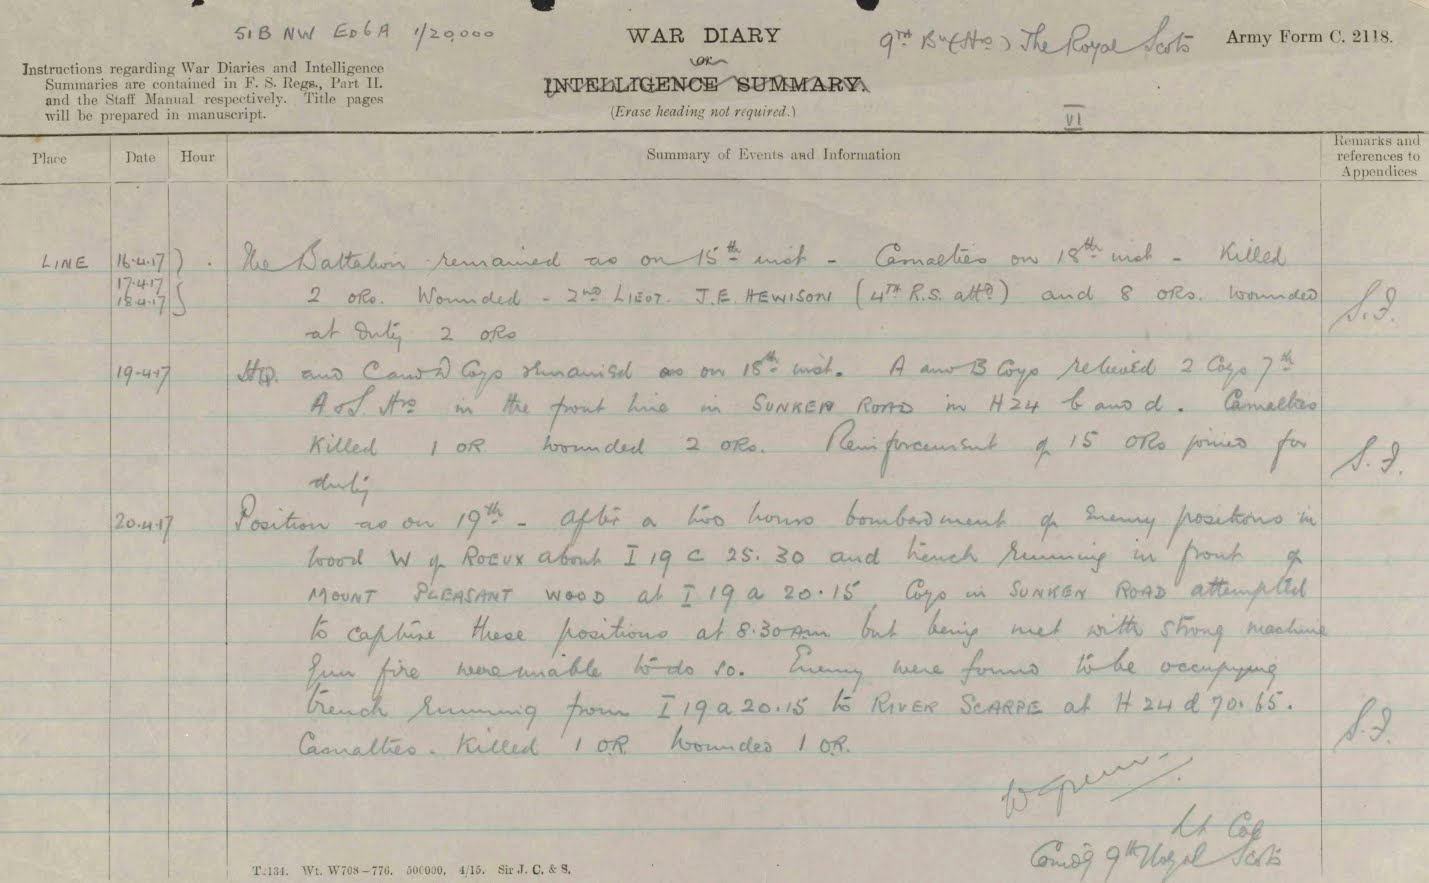 51B NW Ed 6A 1/20,000
WAR DIARY
or
INTELLIGENCE SUMMARY.
(Erase heading not required.)
9TH Bn (Hrs) The Royal Scots
Army Form C. 2118.
VI
Instructions regarding War Diaries and Intelligence
Summaries are contained in F. S. Regs., Part II.
and the Staff Manual respectively. Title pages
will be prepared in manuscript.
Place Date Hour Summary of Events and Information Remarks and
references to
Appendices
LINE 16.4.17 The Battalion remained as on 15th inst - Casualties on 18th inst - Killed
17.4.17
18.4.17 2 ORs. Wounded - 2ND LIEUT. J.E. HEWISON (4TH R.S. attd) and 8 ORs. wounded S.F.
at duty 2 ORs
19-4-17 HQ. and C and D Coys remained as on 18th inst. A and B Coys relieved 2 Coys 7th
A & S Hrs in the front line in SUNKEN ROAD in H24 b and d. Casualties
Killed 1 OR wounded 2 ORs. Reinforcement of 15 ORs joined for S.F.
duty
20.4.17 Position as on 19th - After a two hours bombardment of Enemy positions in
wood W of ROEUX about I 19 c 25.30 and trench running in front of
MOUNT PLEASANT WOOD at I 19 a 20.15, Coys in SUNKEN ROAD attempted
to capture these positions at 8.30am but being met with strong machine
gun fire were unable to do so. Enemy were found to be occupying
trench running from I 19 a 20.15 to RIVER SCARPE at H 24 d 70.65.
Casualties. Killed 1 OR Wounded 1 OR. S.F.
Lt Col
Comdg 9th Royal Scots
T.134. Wt. W708-776. 500000. 4/15. Sir J. C. & S.